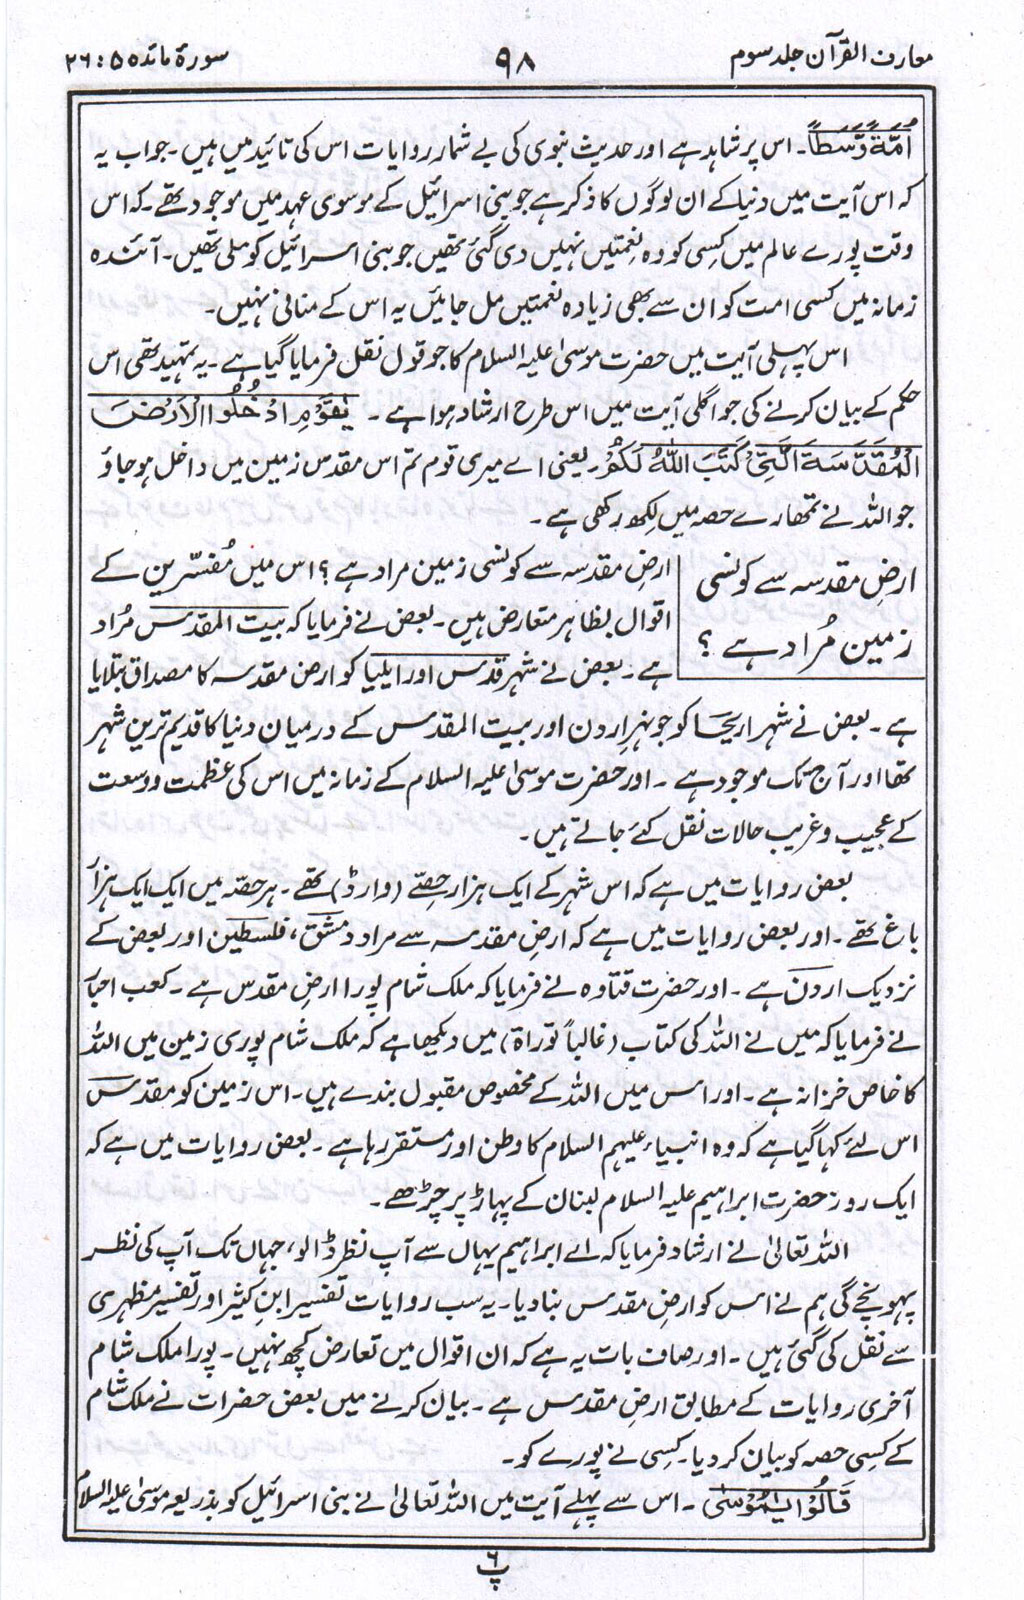 معارف القرآن جلد سوم
۹۸
سورۂ مائدہ ۵ : ۲۶
اُمَّةً وَّسَطًا۔ اس پر شاہد ہے اور حدیث نبوی کی بے شمار روایات اس کی تائید میں ہیں۔ جواب یہ
کہ اس آیت میں دنیا کے ان لوگوں کا ذکر ہے جو بنی اسرائیل کے موسوی عہد میں موجود تھے۔ کہ اس
وقت پورے عالم میں کسی کو وہ نعمتیں نہیں دی گئی تھیں جو بنی اسرائیل کو ملی تھیں۔ آئندہ
زمانہ میں کسی امت کو ان سے بھی زیادہ نعمتیں مل جائیں یہ اس کے منافی نہیں۔
اس پہلی آیت میں حضرت موسیٰ علیہ السلام کا جو قول نقل فرمایا گیا ہے۔ یہ تمہید تھی اس
حکم کے بیان کرنے کی جو اگلی آیت میں اس طرح ارشاد ہوا ہے۔ یٰقَوْمِ ادْخُلُوا الْاَرْضَ
الْمُقَدَّسَةَ الَّتِیْ كَتَبَ اللّٰهُ لَكُمْ۔ یعنی اے میری قوم تم اس مقدس زمین میں داخل ہو جاؤ
جو اللہ نے تمھارے حصہ میں لکھ رکھی ہے۔
ارضِ مقدسہ سے کونسی
زمین مُراد ہے ؟
ارضِ مقدسہ سے کونسی زمین مراد ہے ؟ اس میں مُفسّرین کے
اقوال بظاہر متعارض ہیں۔ بعض نے فرمایا کہ بیت المقدس مُراد
ہے۔ بعض نے شہر قدس اور ایلیا کو ارض مقدسہ کا مصداق بتلایا
ہے۔ بعض نے شہر اریحا کو جو نہرِ اردن اور بیت المقدس کے درمیان دنیا کا قدیم ترین شہر
تھا اور آج تک موجود ہے۔ اور حضرت موسیٰ علیہ السلام کے زمانہ میں اس کی عظمت و وسعت
کے عجیب و غریب حالات نقل کئے جاتے ہیں۔
بعض روایات میں ہے کہ اس شہر کے ایک ہزار حِصّے (وارڈ) تھے۔ ہر حصّہ میں ایک ایک ہزار
باغ تھے۔ اور بعض روایات میں ہے کہ ارضِ مقدسہ سے مراد دمشق، فلسطین اور بعض کے
نزدیک اردن ہے۔ اور حضرت قتادہ نے فرمایا کہ ملک شام پورا ارضِ مقدس ہے۔ کعب احبار
نے فرمایا کہ میں نے اللہ کی کتاب (غالباً توراة) میں دیکھا ہے کہ ملک شام پوری زمین میں اللہ
کا خاص خزانہ ہے۔ اور اس میں اللہ کے مخصوص مقبول بندے ہیں۔ اس زمین کو مقدس
اس لئے کہا گیا ہے کہ وہ انبیاء علیہم السلام کا وطن اور مستقر رہا ہے۔ بعض روایات میں ہے کہ
ایک روز حضرت ابراہیم علیہ السلام لبنان کے پہاڑ پر چڑھے۔
اللہ تعالیٰ نے ارشاد فرمایا کہ اے ابراہیم یہاں سے آپ نظر ڈالو، جہاں تک آپ کی نظر
پہونچے گی ہم نے اس کو ارضِ مقدس بنا دیا۔ یہ سب روایات تفسیر ابنِ کثیر اور تفسیر مظہری
سے نقل کی گئی ہیں۔ اور صاف بات یہ ہے کہ ان اقوال میں تعارض کچھ نہیں۔ پورا ملک شام
آخری روایات کے مطابق ارضِ مقدس ہے۔ بیان کرنے میں بعض حضرات نے ملک شام
کے کسی حصہ کو بیان کر دیا۔ کسی نے پورے کو۔
قَالُوْا یٰمُوْسٰی۔ اس سے پہلے آیت میں اللہ تعالیٰ نے بنی اسرائیل کو بذریعہ موسیٰ علیہ السلام
پ ۶